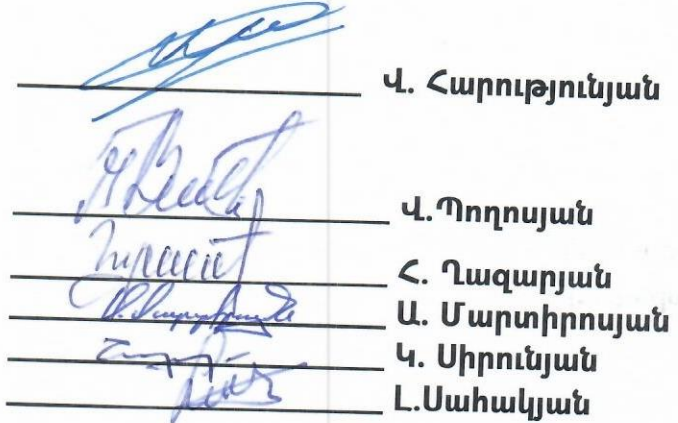 Վ. Հարությունյան
Վ.Պողոսյան
Հ. Ղազարյան
Ա. Մարտիրոսյան
Կ. Սիրունյան
Լ.Սահակյան